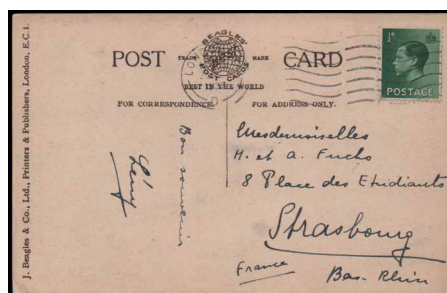 J. Beagles & Co., Ltd., Printers & Publishers, London, E.C.1.
POST CARD
BEAGLES'
TRADE MARK
POST CARDS
BEST IN THE WORLD
FOR CORRESPONDENCE.
FOR ADDRESS ONLY.
½D
POSTAGE
Bon souvenir
Mesdemoiselles
H. et A. Fuchs
8 Place des Etudiants
Strasbourg
France
Bas-Rhin